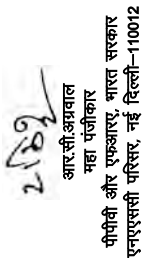 आर.सी.अग्रवाल
महा पंजीकार
पीपीवी और एफआरए, भारत सरकार
एनएएससी परिसर, नई दिल्ली–110012